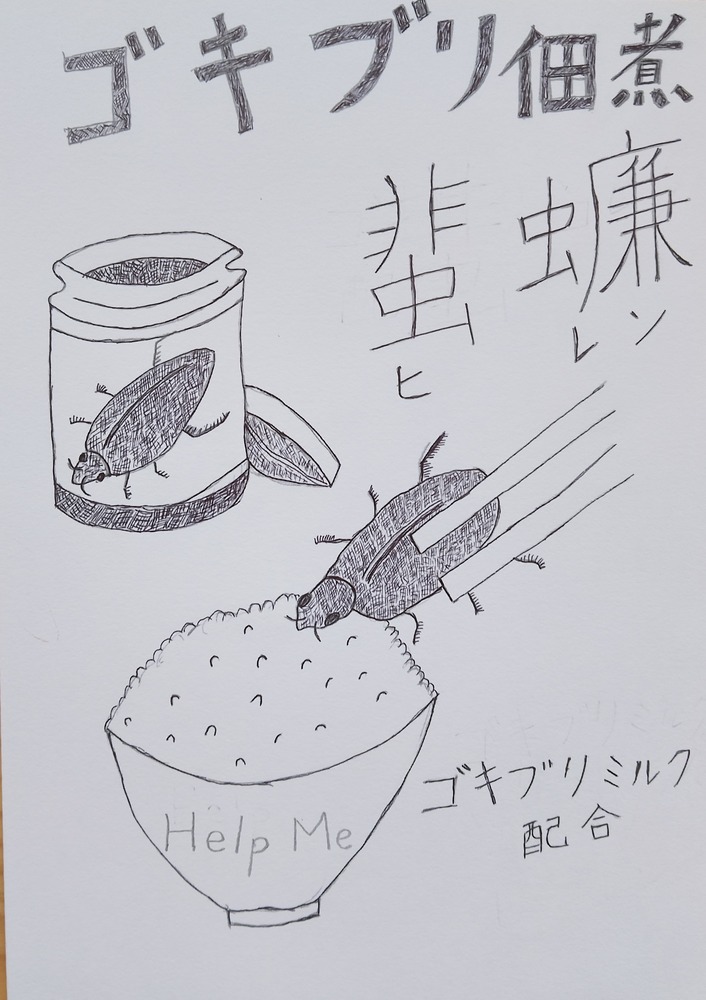 ゴキブリ佃煮
蜚蠊
ヒ レン
Help Me
ゴキブリミルク
配合